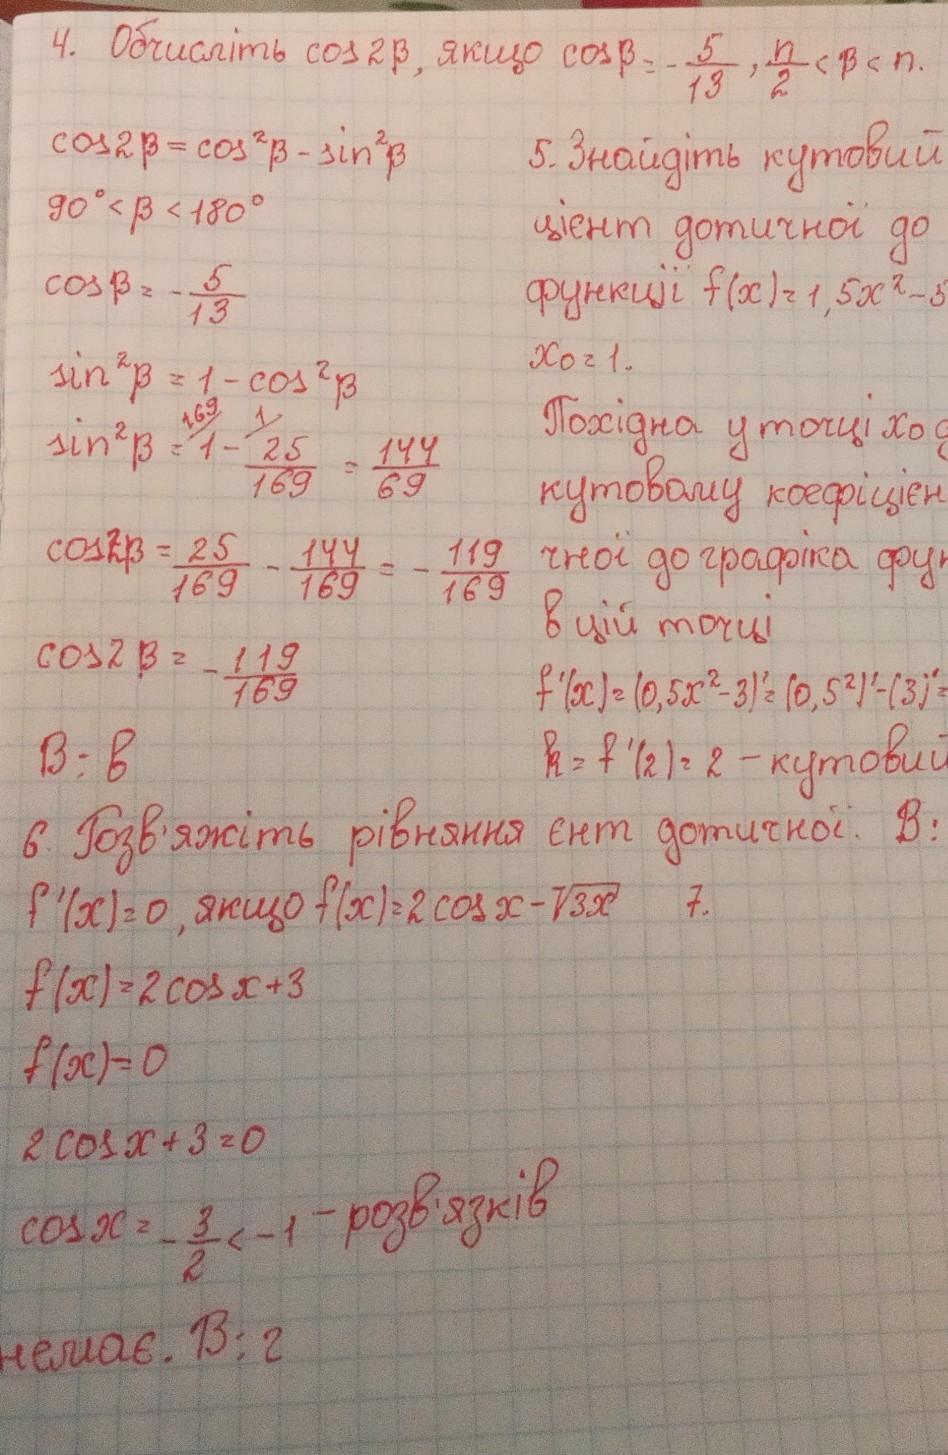 4. Обчисліть cos2β, якщо cosβ = -5/13, п/2 < β < п.
cos2β = cos²β - sin²β
90° < β < 180°
cosβ = -5/13
sin²β = 1 - cos²β
sin²β = 1 - 25/169 = 144/69
cos2β = 25/169 - 144/169 = -119/169
cos2β = -119/169
В: в
5. Знайдіть кутовий
цієнт дотичної до
функції f(x) = 1,5x² - 5
x0 = 1.
Похідна у точці x0 д
кутовому коефіцієн
чної до графіка фун
в цій точці
f'(x) = (0,5x² - 3)' = (0,5²)' - (3)' =
k = f'(2) = 2 - кутовий
єнт дотичної. В:
6. Розв'яжіть рівняння
f'(x) = 0, якщо f(x) = 2cosx - √3x
f(x) = 2cosx + 3
f(x) = 0
2cosx + 3 = 0
cosx = -3/2 < -1 - розв'язків
немає. В: г
7.